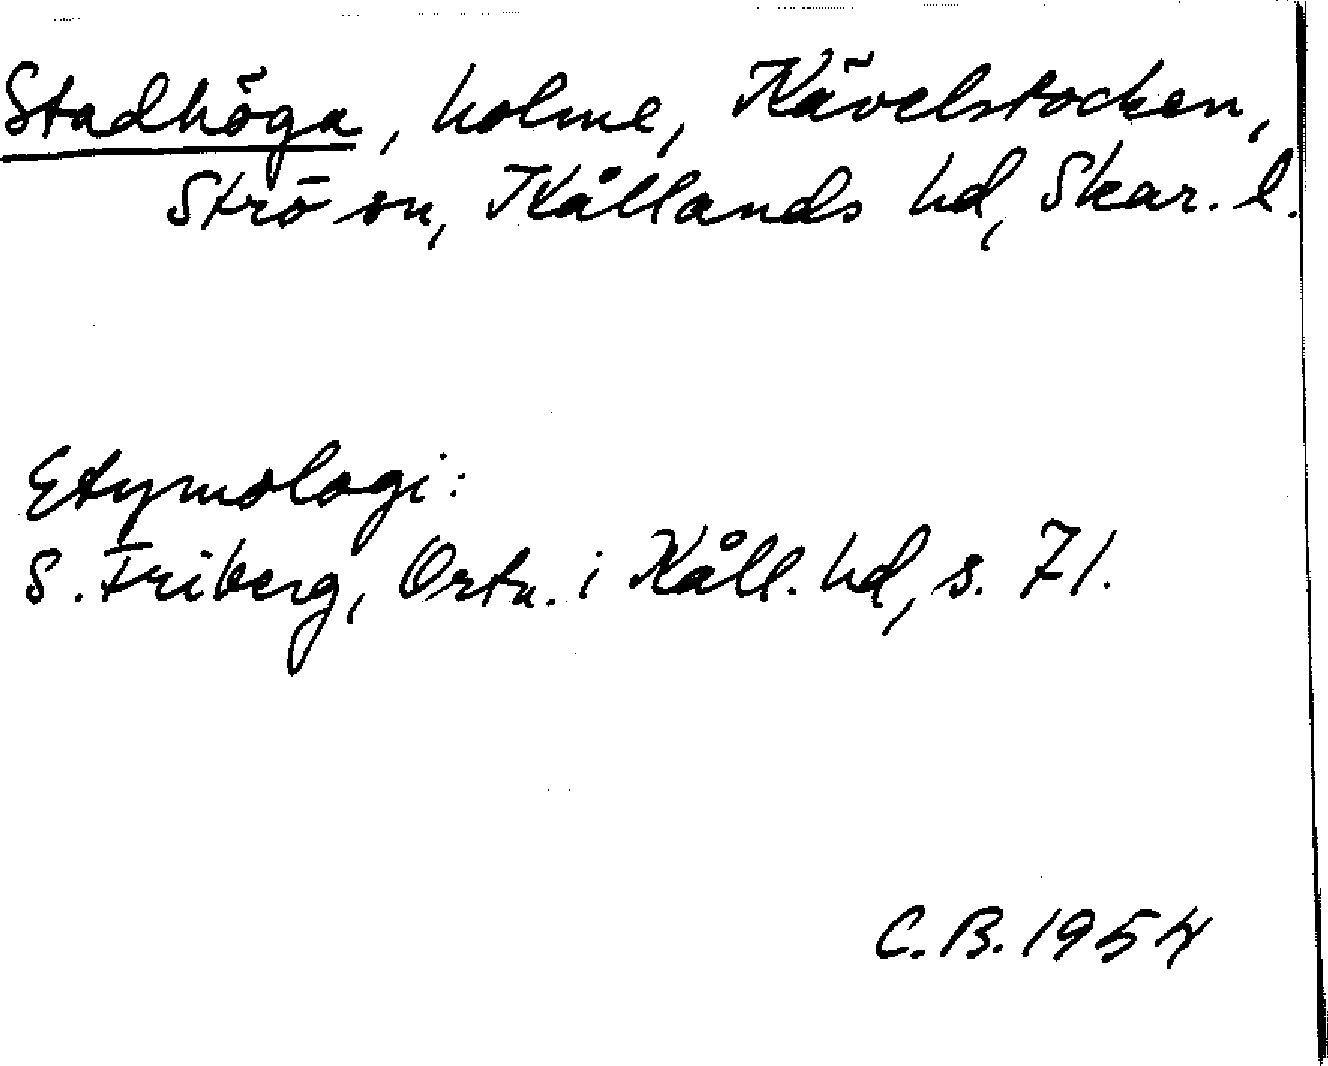 Stadhöga, holme, Kävelstocken,
Strö sn, Kållands hd, Skar. l.
Etymologi:
S. Friberg, Ortn. i Kåll. hd, s. 71.
C.B. 1954